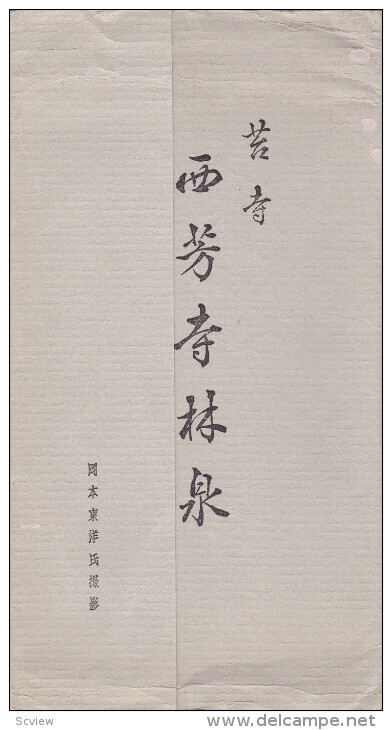 苔寺
西芳寺林泉
岡本東洋氏撮影
Scview
delcampe.net